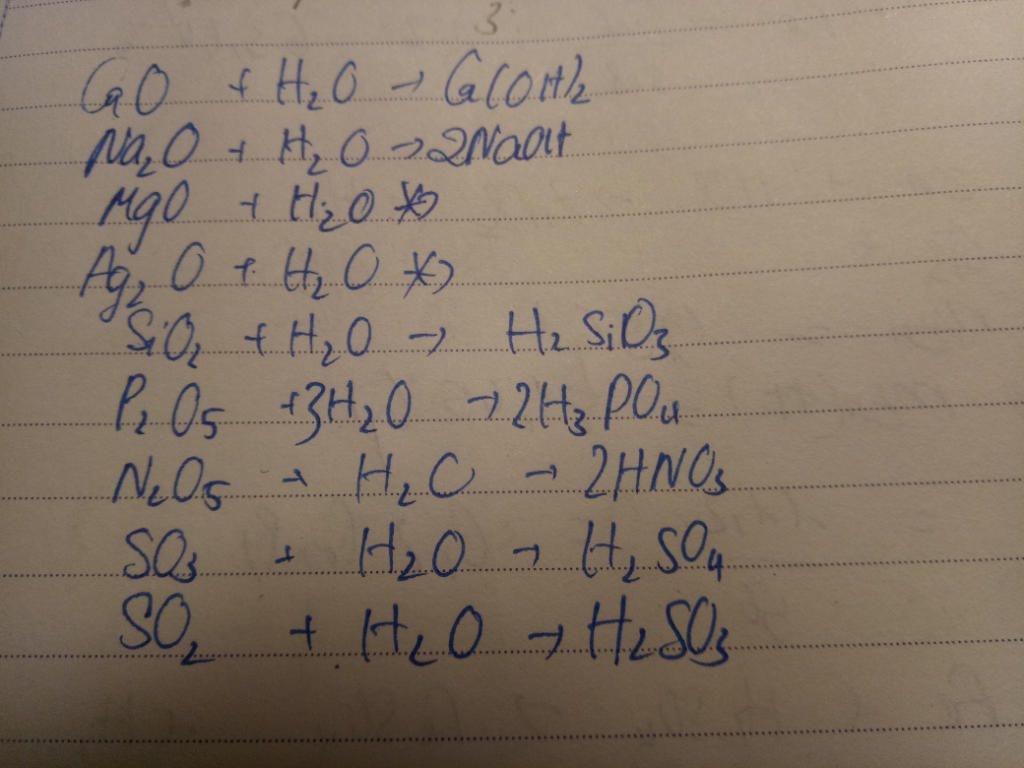 3.
CaO + H₂O → Ca(OH)₂
Na₂O + H₂O → 2NaOH
MgO + H₂O ↛
Ag₂O + H₂O ↛
SiO₂ + H₂O → H₂SiO₃
P₂O₅ + 3H₂O → 2H₃PO₄
N₂O₅ + H₂O → 2HNO₃
SO₃ + H₂O → H₂SO₄
SO₂ + H₂O → H₂SO₃